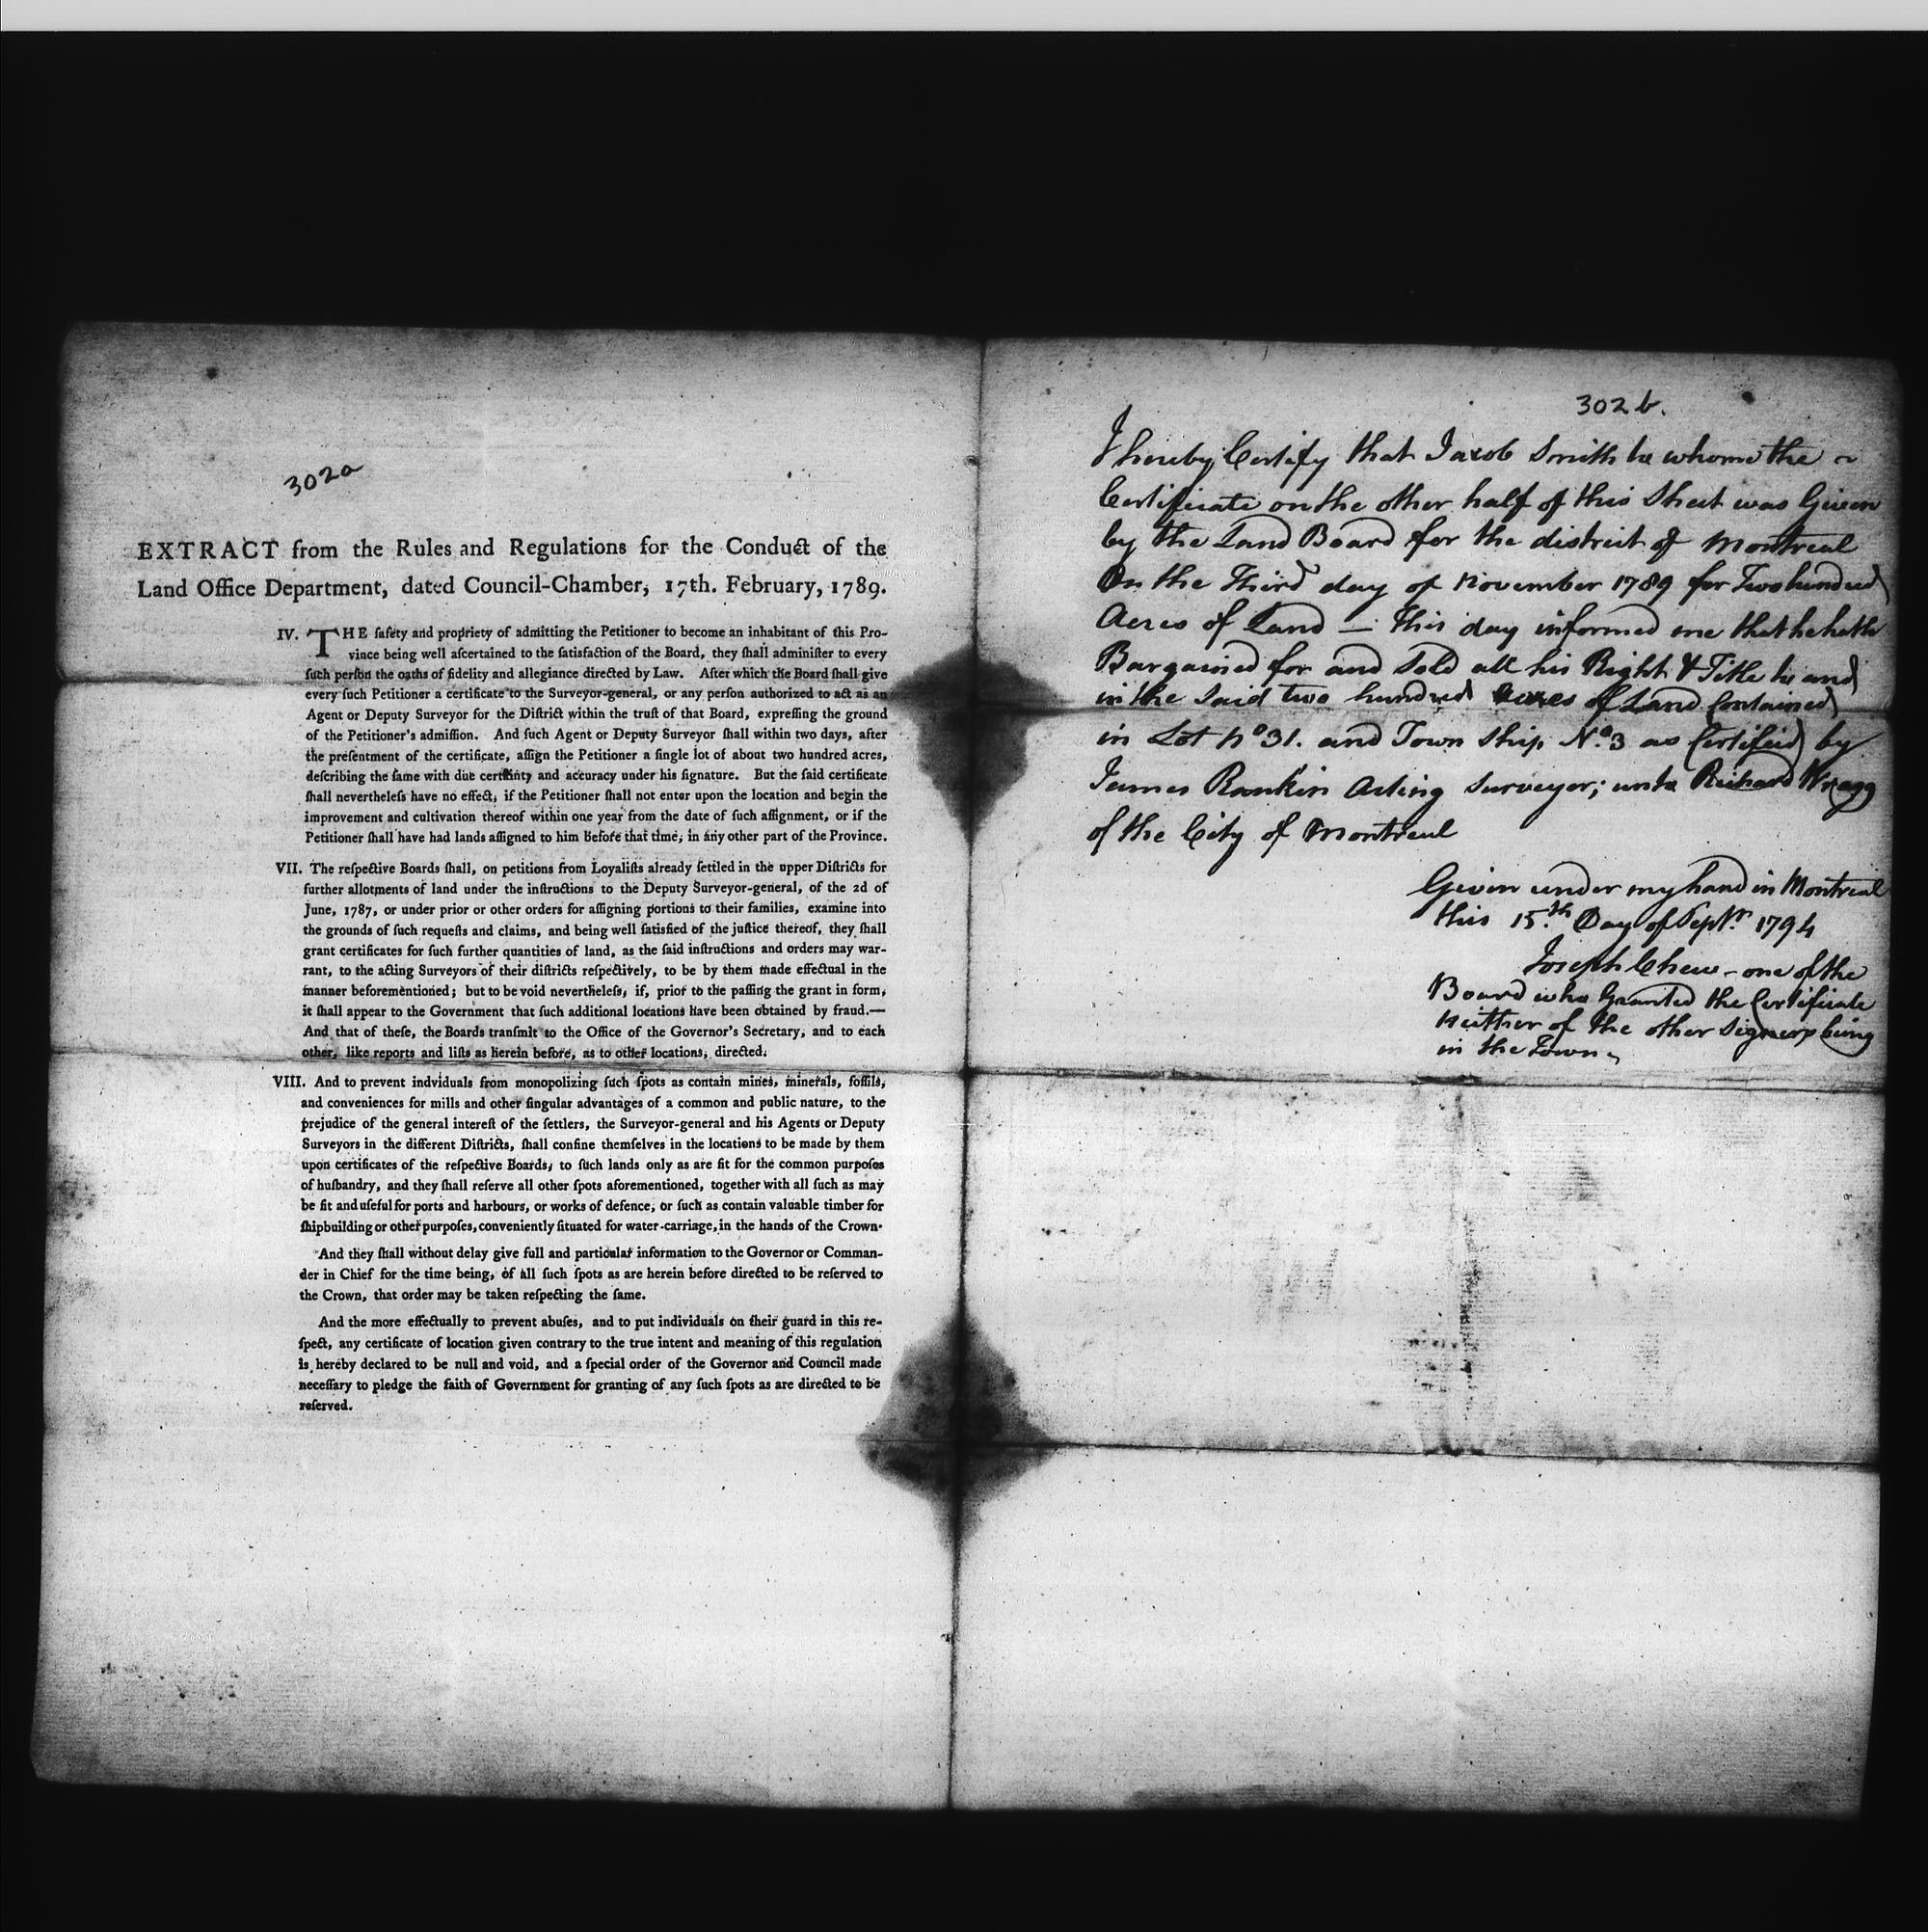 302a
EXTRACT from the Rules and Regulations for the Conduct of the
Land Office Department, dated Council-Chamber, 17th. February, 1789.
IV. THE ſafety and propriety of admitting the Petitioner to become an inhabitant of this Pro-
vince being well aſcertained to the ſatisfaction of the Board, they ſhall adminiſter to every
ſuch perſon the oaths of fidelity and allegiance directed by Law. After which the Board ſhall give
every ſuch Petitioner a certificate to the Surveyor-general, or any perſon authorized to act as an
Agent or Deputy Surveyor for the Diſtrict within the truſt of that Board, expreſſing the ground
of the Petitioner's admiſſion. And ſuch Agent or Deputy Surveyor ſhall within two days, after
the preſentment of the certificate, aſſign the Petitioner a ſingle lot of about two hundred acres,
deſcribing the ſame with due certainty and accuracy under his ſignature. But the ſaid certificate
ſhall nevertheleſs have no effect, if the Petitioner ſhall not enter upon the location and begin the
improvement and cultivation thereof within one year from the date of ſuch aſſignment, or if the
Petitioner ſhall have had lands aſſigned to him before that time, in any other part of the Province.
VII. The reſpective Boards ſhall, on petitions from Loyaliſts already ſettled in the upper Diſtricts for
further allotments of land under the inſtructions to the Deputy Surveyor-general, of the 2d of
June, 1787, or under prior or other orders for aſſigning portions to their families, examine into
the grounds of ſuch requeſts and claims, and being well ſatisfied of the juſtice thereof, they ſhall
grant certificates for ſuch further quantities of land, as the ſaid inſtructions and orders may war-
rant, to the acting Surveyors of their diſtricts reſpectively, to be by them made effectual in the
manner beforementioned; but to be void nevertheleſs, if, prior to the paſſing the grant in form,
it ſhall appear to the Government that ſuch additional locations have been obtained by fraud.—
And that of theſe, the Boards tranſmit to the Office of the Governor's Secretary, and to each
other, like reports and liſts as herein before, as to other locations, directed.
VIII. And to prevent indviduals from monopolizing ſuch ſpots as contain mines, minerals, foſſils,
and conveniences for mills and other ſingular advantages of a common and public nature, to the
prejudice of the general intereſt of the ſettlers, the Surveyor-general and his Agents or Deputy
Surveyors in the different Diſtricts, ſhall confine themſelves in the locations to be made by them
upon certificates of the reſpective Boards, to ſuch lands only as are fit for the common purpoſes
of huſbandry, and they ſhall reſerve all other ſpots aforementioned, together with all ſuch as may
be fit and uſeful for ports and harbours, or works of defence, or ſuch as contain valuable timber for
ſhipbuilding or other purpoſes, conveniently ſituated for water-carriage, in the hands of the Crown.
And they ſhall without delay give full and particular information to the Governor or Comman-
der in Chief for the time being, of all ſuch ſpots as are herein before directed to be reſerved to
the Crown, that order may be taken reſpecting the ſame.
And the more effectually to prevent abuſes, and to put individuals on their guard in this re-
ſpect, any certificate of location given contrary to the true intent and meaning of this regulation
is hereby declared to be null and void, and a ſpecial order of the Governor and Council made
neceſſary to pledge the faith of Government for granting of any ſuch ſpots as are directed to be
reſerved.
302 b.
I hereby Certify that Jacob Smith to whome the
Certificate on the other half of this Sheet was Given
by the Land Board for the district of Montreal
On the Third day of November 1789 for Two hundred
Acres of Land — This day informed me that he hath
Bargained for and Sold all his Right & Title to and
in the Said two hundred Acres of Land Contained
in Lot No 31. and Town Ship No. 3 as Certified by
James Rankin Acting Surveyor; unto Richard Wragg
of the City of Montreal
Given under my hand in Montreal
this 15.th Day of Septr. 1794
Joseph Chew - one of the
Board who Granted the Certificate
Neither of the other Signers being
in the Town